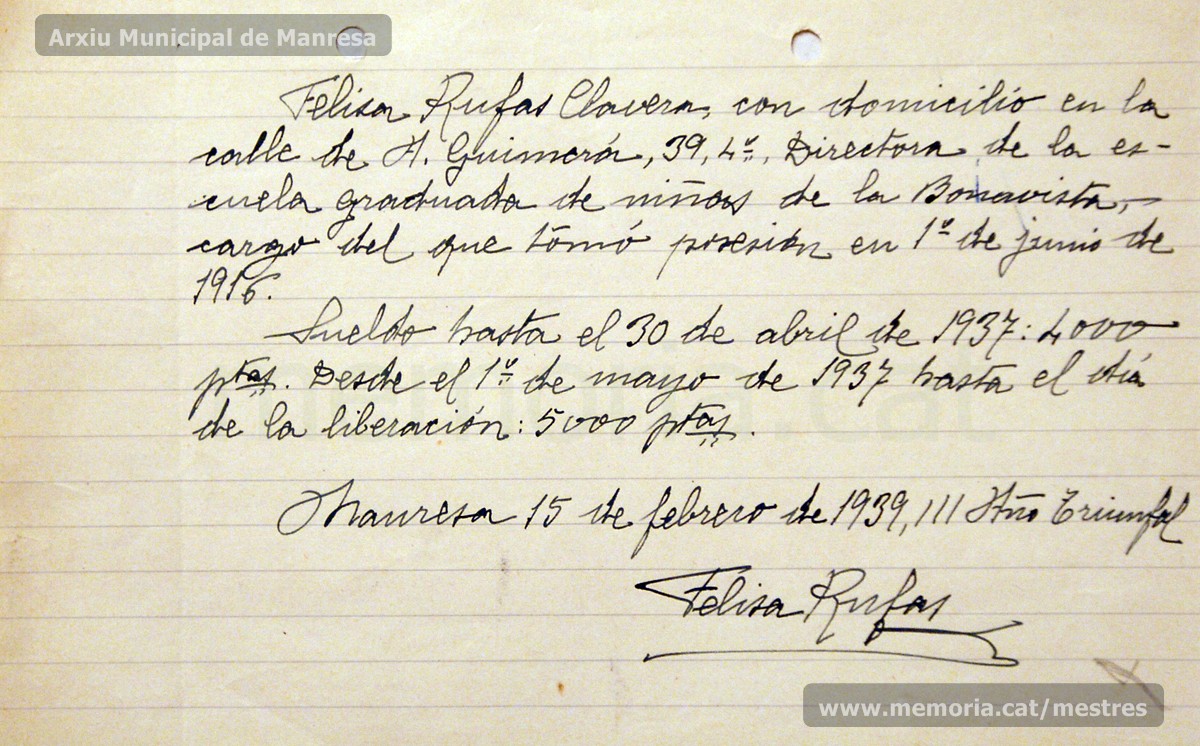 Arxiu Municipal de Manresa
Felisa Rufas Clavera, con domicilio en la
calle de A. Guimerá, 39, 4º, Directora de la es-
cuela graduada de niñas de la Bonavista,-
cargo del que tomó posesión en 1º de junio de
1916.
Sueldo hasta el 30 de abril de 1937: 4000
ptas. Desde el 1º de mayo de 1937 hasta el día
de la liberación: 5000 ptas.
Manresa 15 de febrero de 1939, III Año Triunfal
Felisa Rufas
www.memoria.cat/mestres